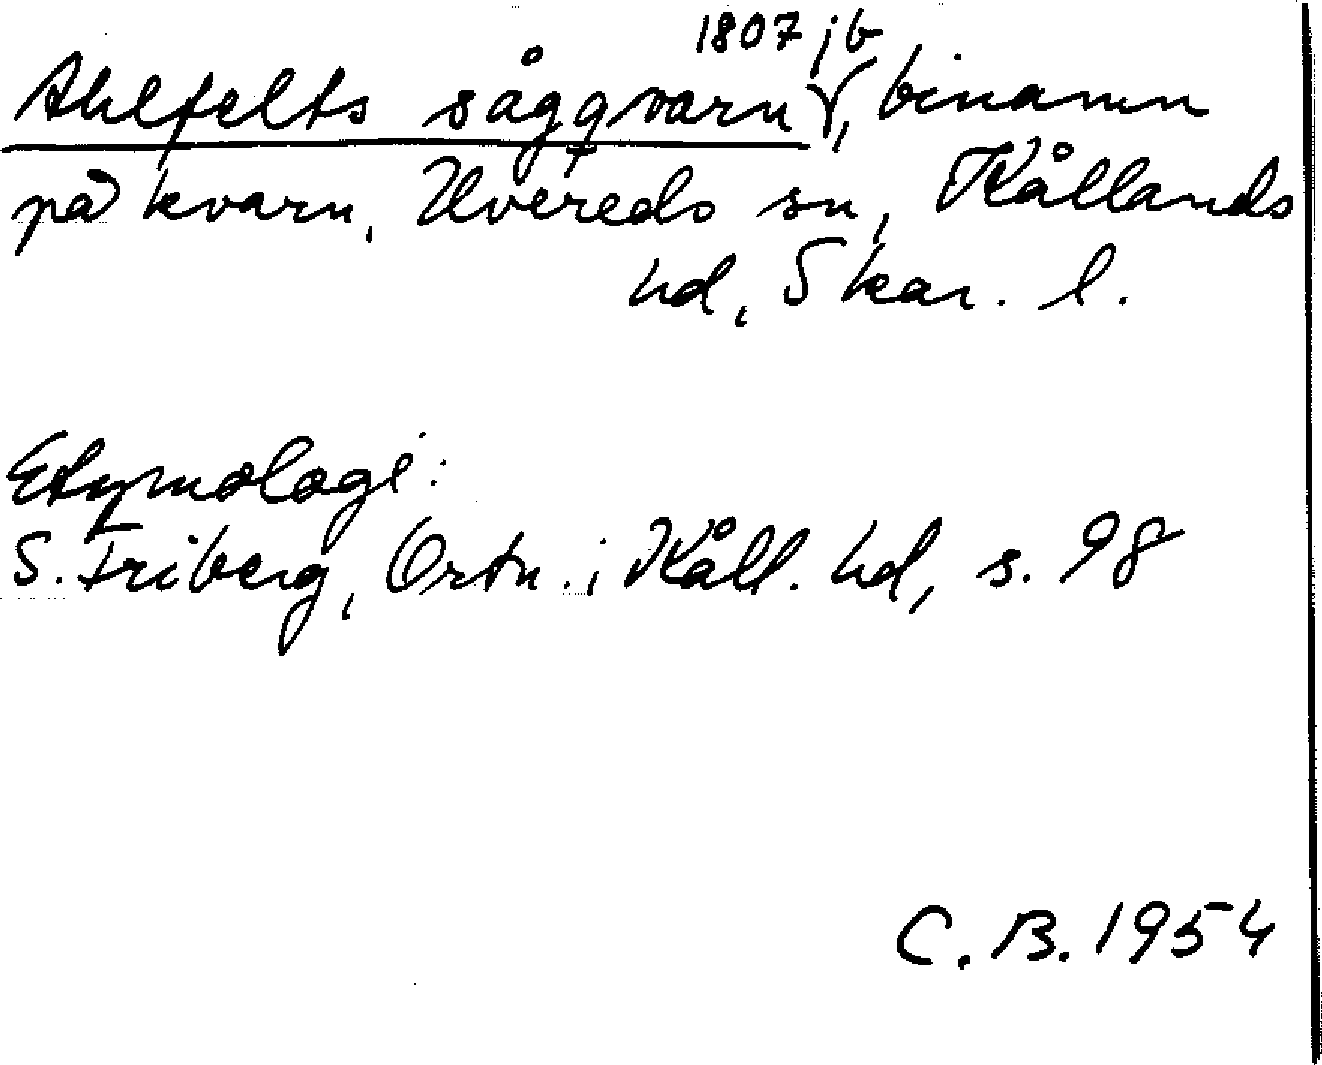 1807 jb
Ahlfelts sågqvarn, binamn
på kvarn, Uvereds sn, Kållands
hd, Skar. l.
Etymologi:
S. Friberg, Ortn. i Kåll. hd, s. 98
C. B. 1954